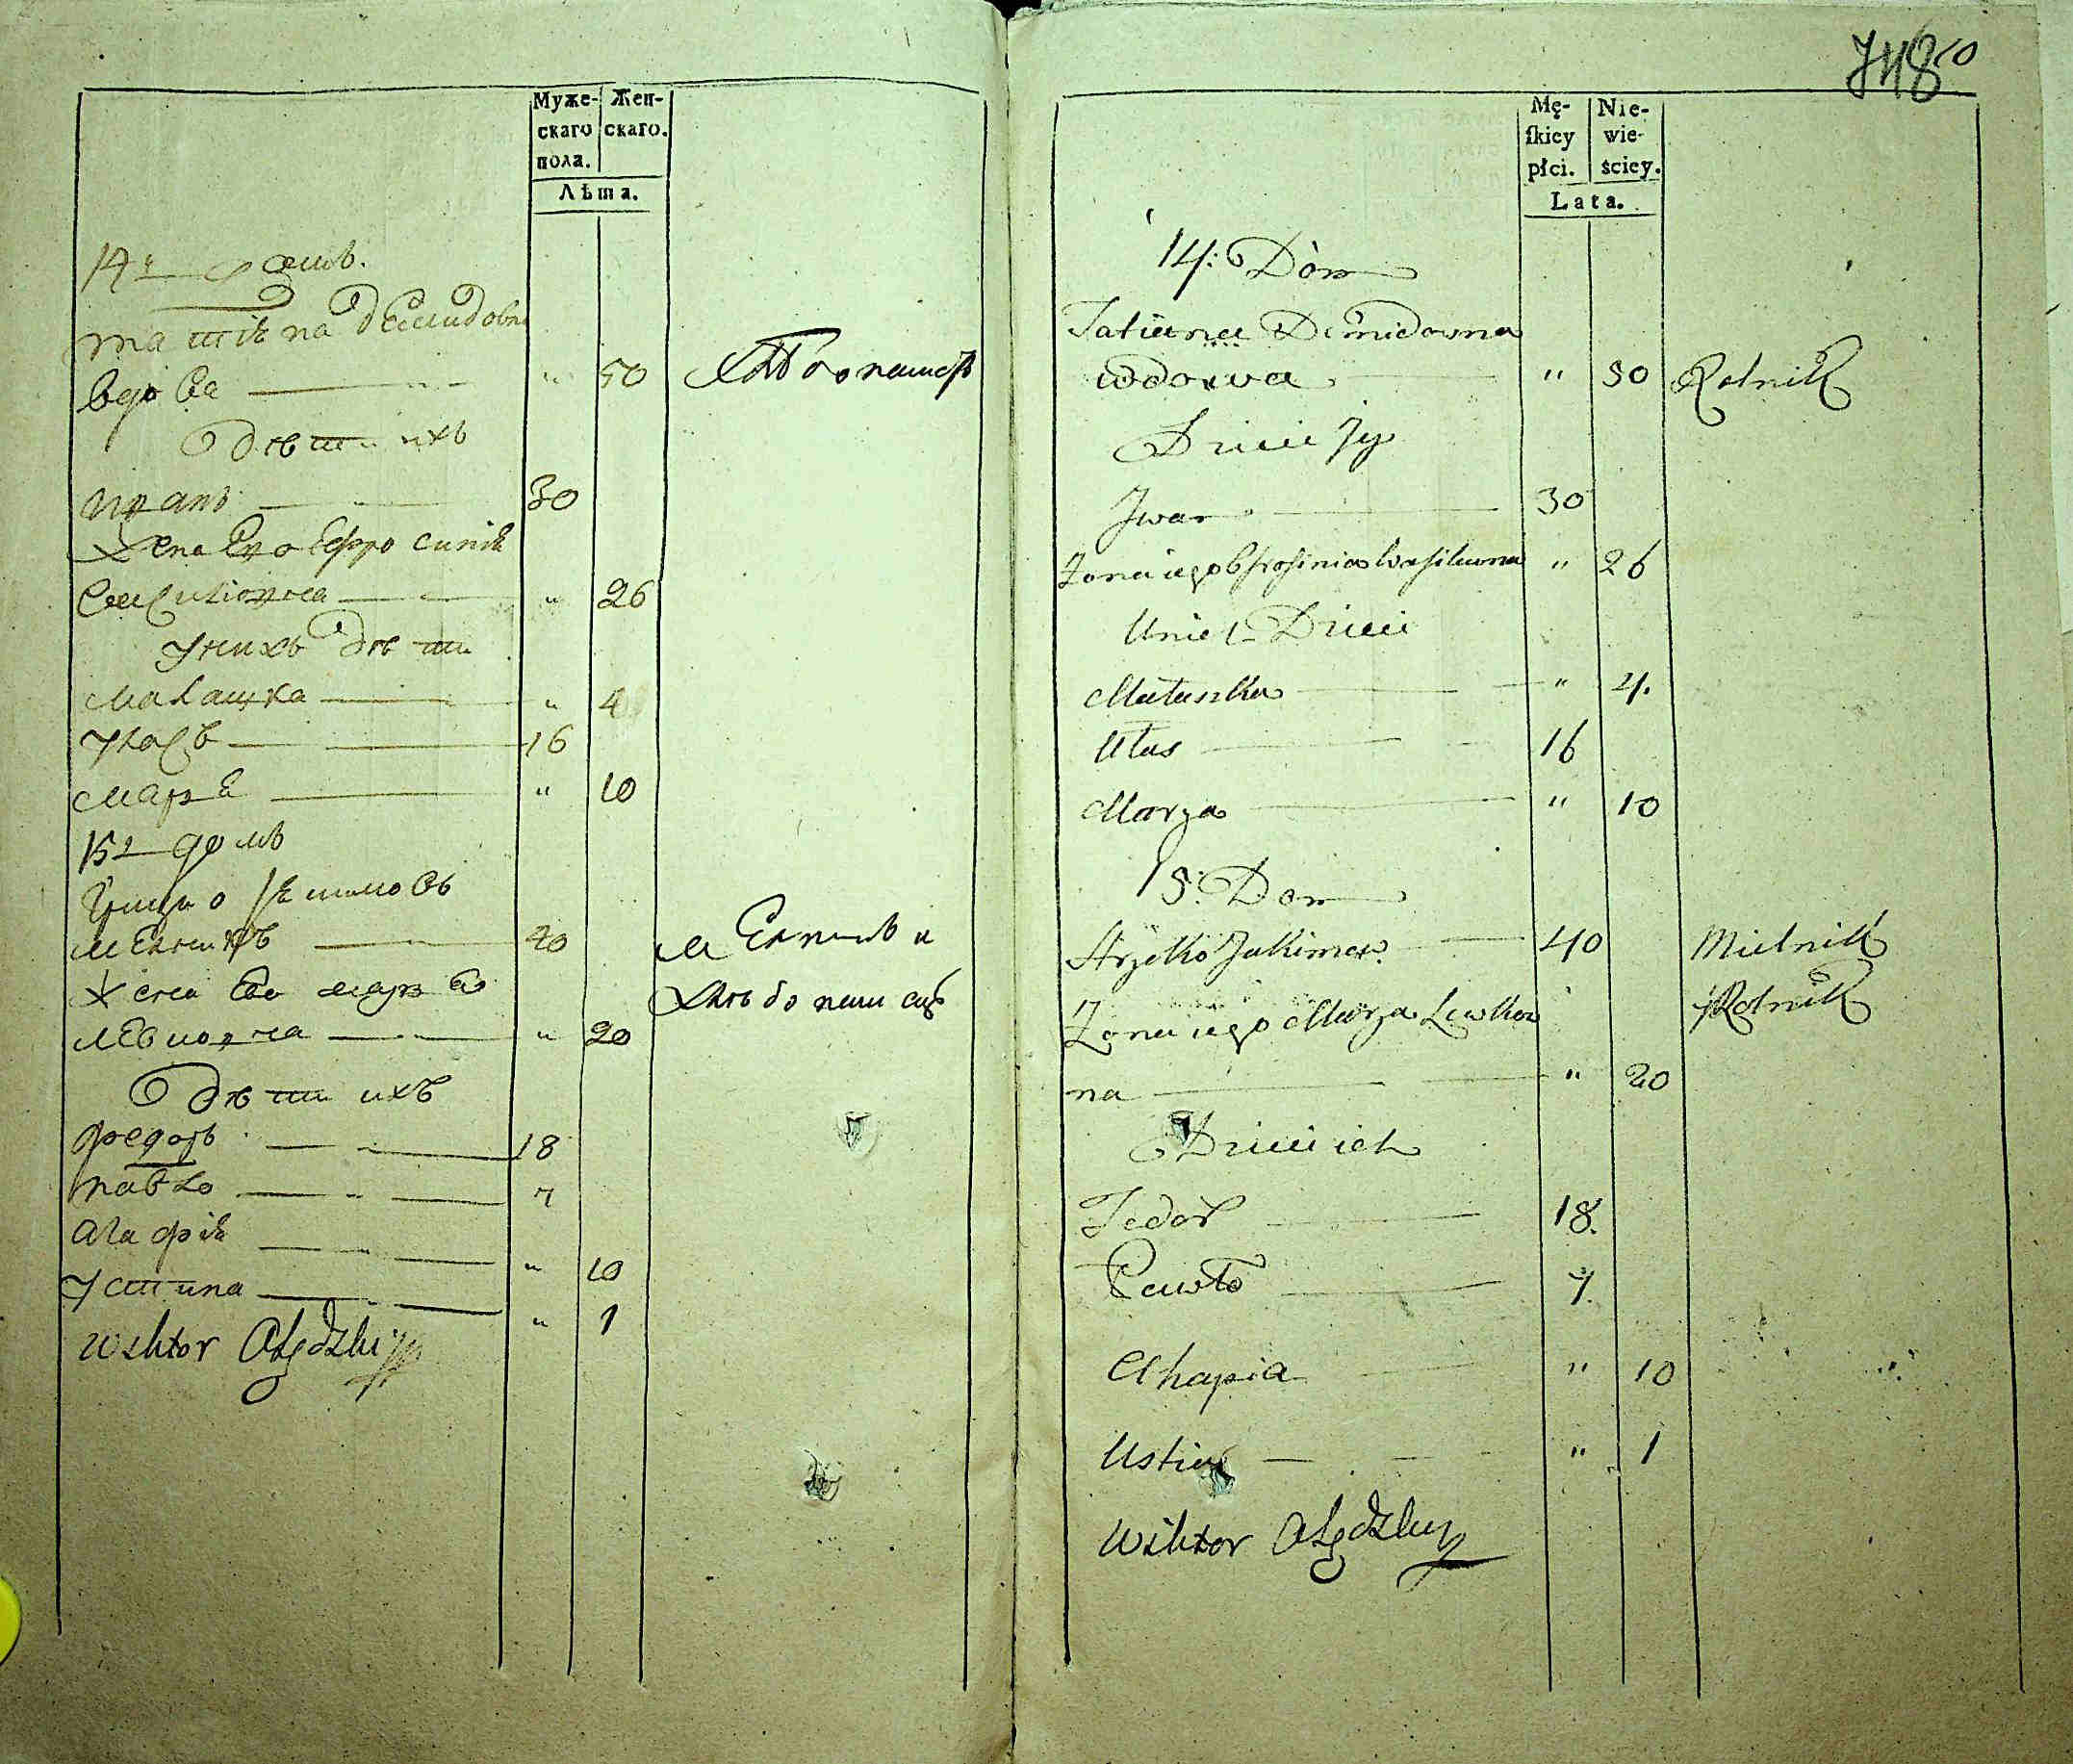 Муже-
скаго
пола.
Жен-
скаго.
Лѣта.
14й домъ.
татіяна демидовна
вдова " 50 Хлѣбопашецъ
Дѣти ихъ
иванъ 30
Жена Его Ефросинія
Василіовна " 26
У нихъ Дѣти
малашка " 4
Уласъ 16
марья " 10
15й домъ
Грицко Якимовъ
мельникъ 40 мельникъ и
Жена Его марья Хлѣбопашецъ
левковна " 20
Дѣти ихъ
федоръ 18
павло 7
агафія " 10
устина " 1
Wiktor
748 10
Mę-
skiey
płci.
Nie-
wie-
ściey.
Lata.
14: Dom
Tatiana Demidowna
wdowa " 50 Rolnik
Dzieci Jey
Jwan 30
Zona iego Efrosinia Wasilewna " 26
U nich Dzieci
Małaszka " 4.
Ułas 16
Marya " 10
15: Dom
Hryćko Jakimow 40 Mielnik
Zona iego Marya Lewkow i Rolnik
na " 20
Dzieci ich
Fedor 18.
Pawło 7.
Ahapia " 10
Ustina " 1
Wiktor